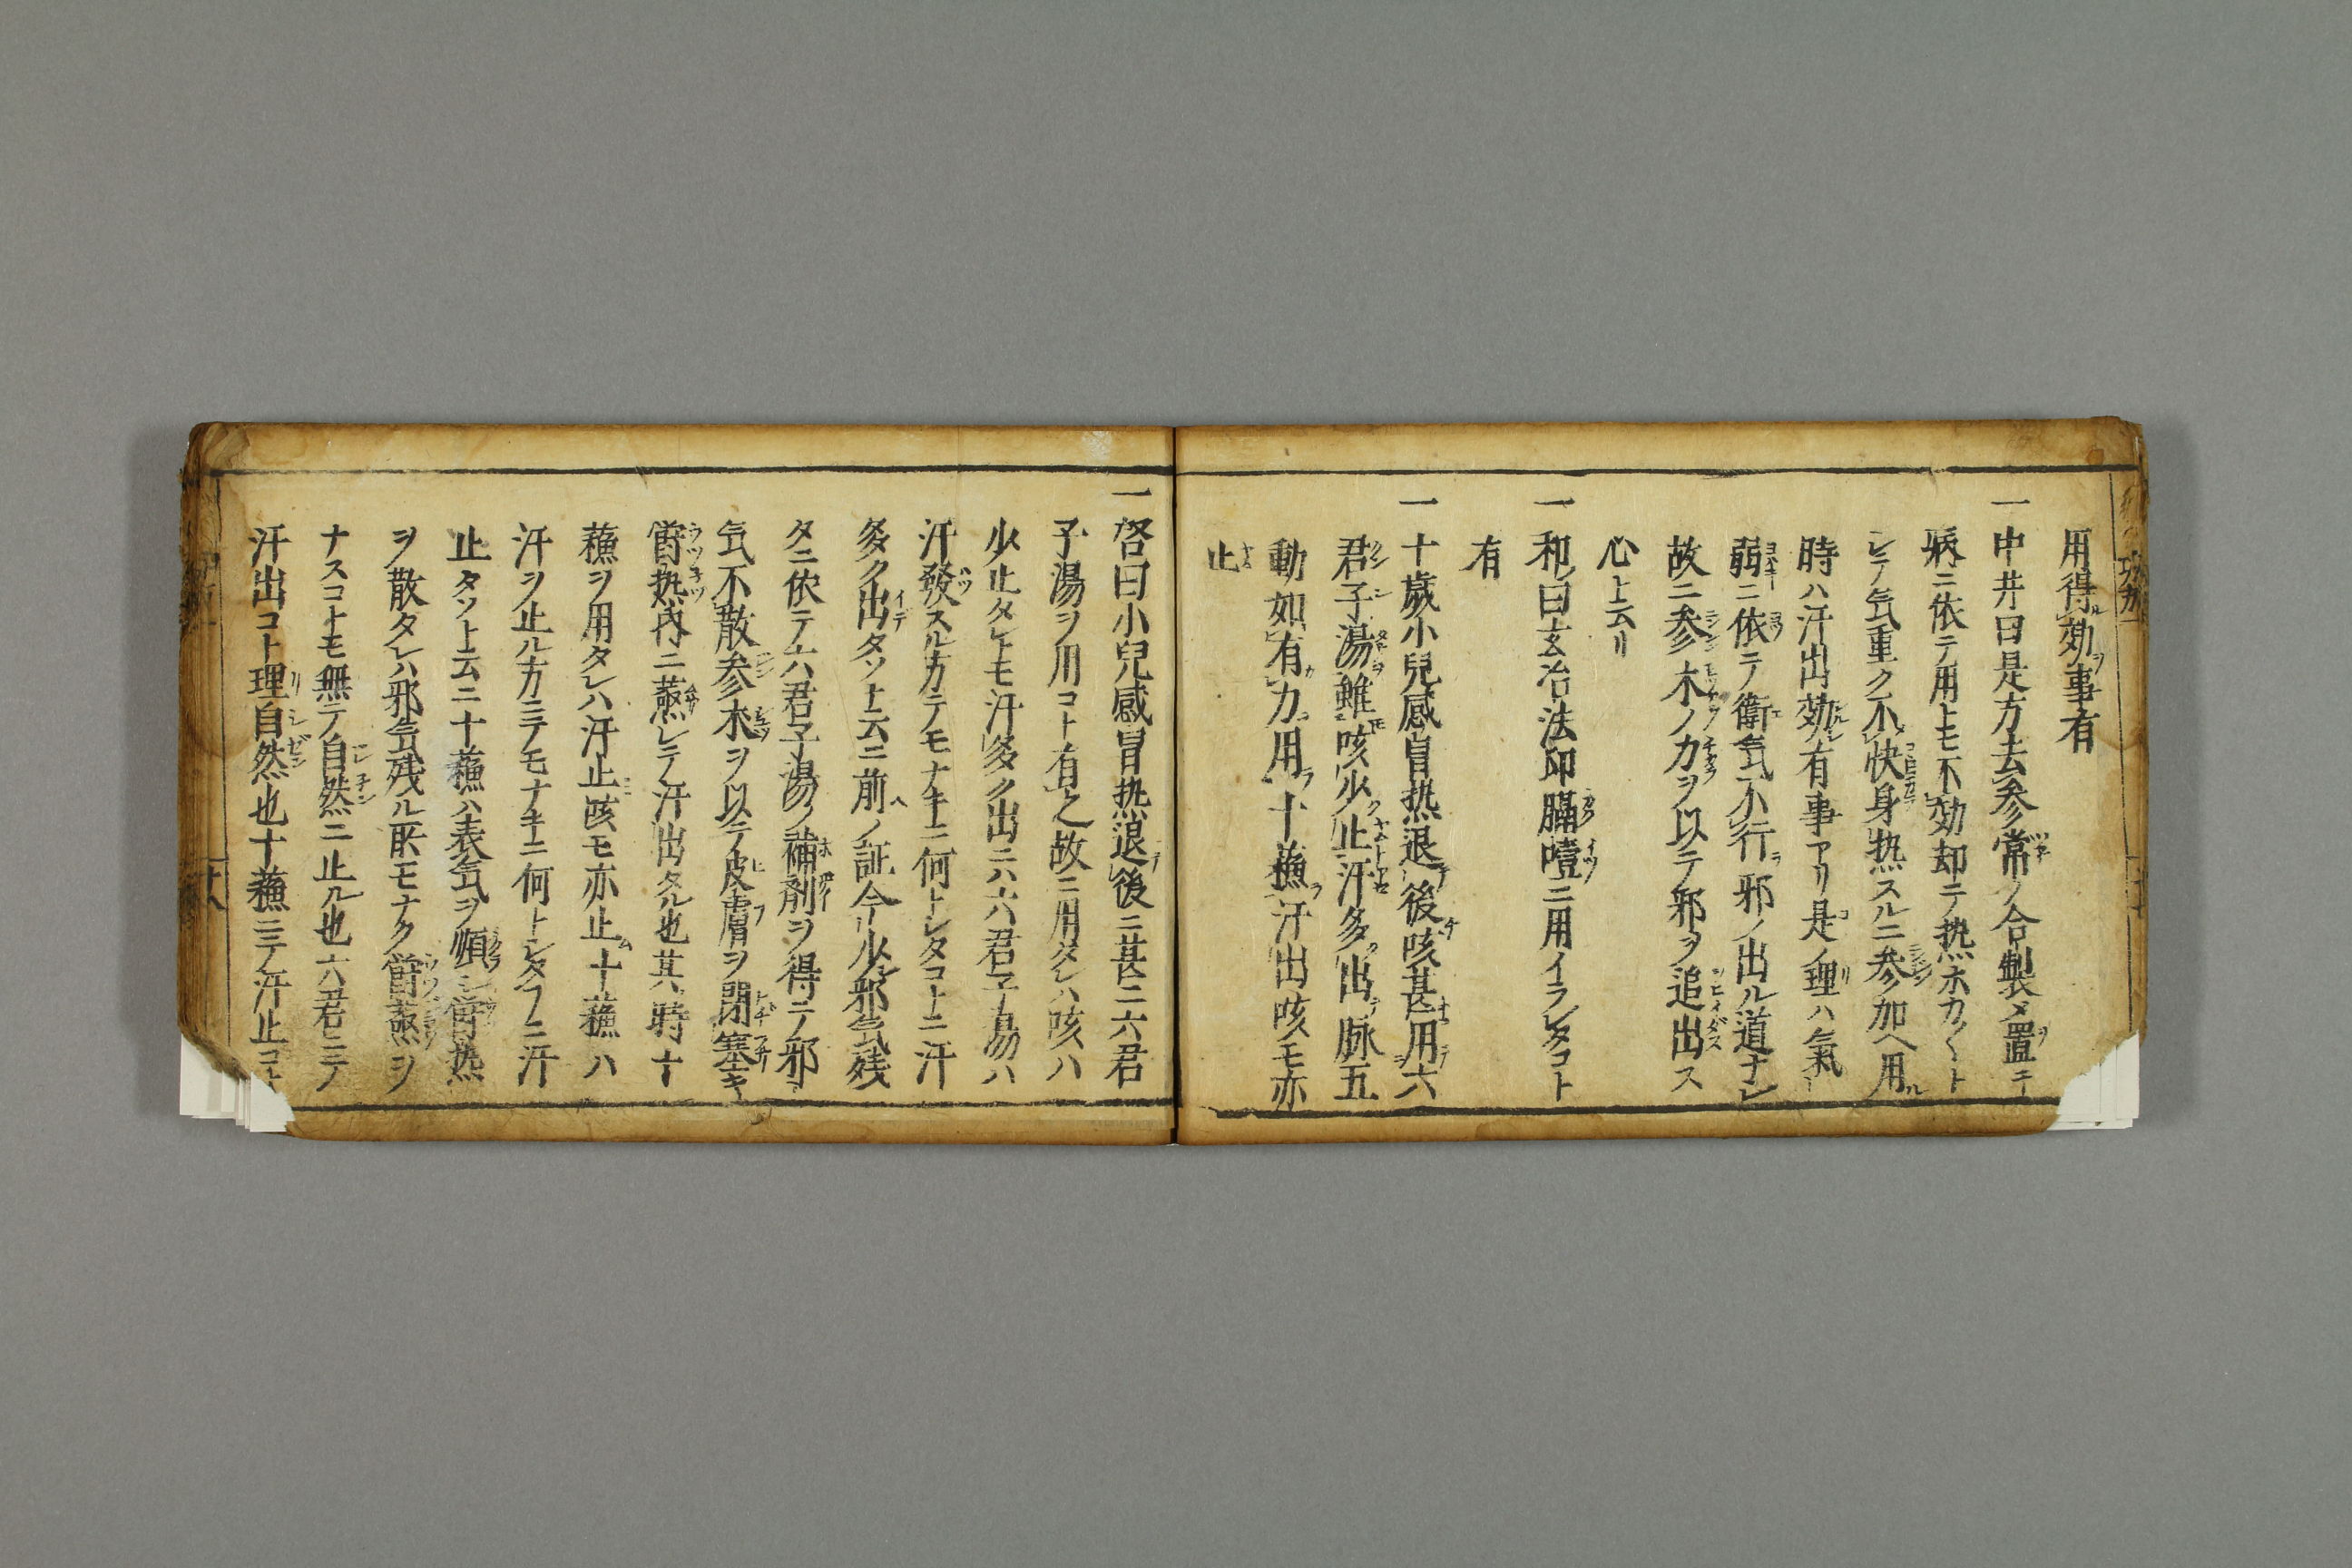 用得ル効ヲ事有
一中井曰是方去参常ノ合製メ置ニ
病ニ依テ用トモ不効却テ热ホカ〱ト
シテ気重ク不快身热スルニ参加ヘ用ル
時ハ汗出効有事アリ是ノ理ハ氣
弱ニ依テ衛気不行邪ノ出ル道ナシ
故ニ参木ノ力ヲ以テ邪ヲ追出ス
心ト云リ
一和曰玄冶法印膈噎ニ用イラレタコト
有
一十歳小兒感冒热退テ後咳甚用六
君子湯雖咳少ク止汗多ク出テ脉五
動如有力用十蘓汗出咳モ亦
止
一啓曰小兒感冒热退テ後ニ甚ニ六君
子湯ヲ用コト有之故ニ用タレハ咳ハ
少止タレトモ汗多ク出ニ六君子湯ハ
汗發スル方テモナキニ何トシタコトニ汗
多ク出タソト云ニ前ノ証今少邪気残
タニ依テ六君子湯ノ補剤ヲ得テ邪
気不散参木ヲ以テ皮膚ヲ閉塞キ
欝热内ニ蒸シテ汗出タル也其時十
蘓ヲ用タレハ汗止咳モ亦止十蘓ハ
汗ヲ止ル方ニテモナキニ何トシタフニ汗
止タソト云ニ十蘓ハ表気ヲ順シ欝热
ヲ散タレハ邪気残ル所モナク欝蒸ヲ
ナスコトモ無テ自然ニ止ル也六君ニテ
汗出コト理自然也十蘓ニテ汗止コト